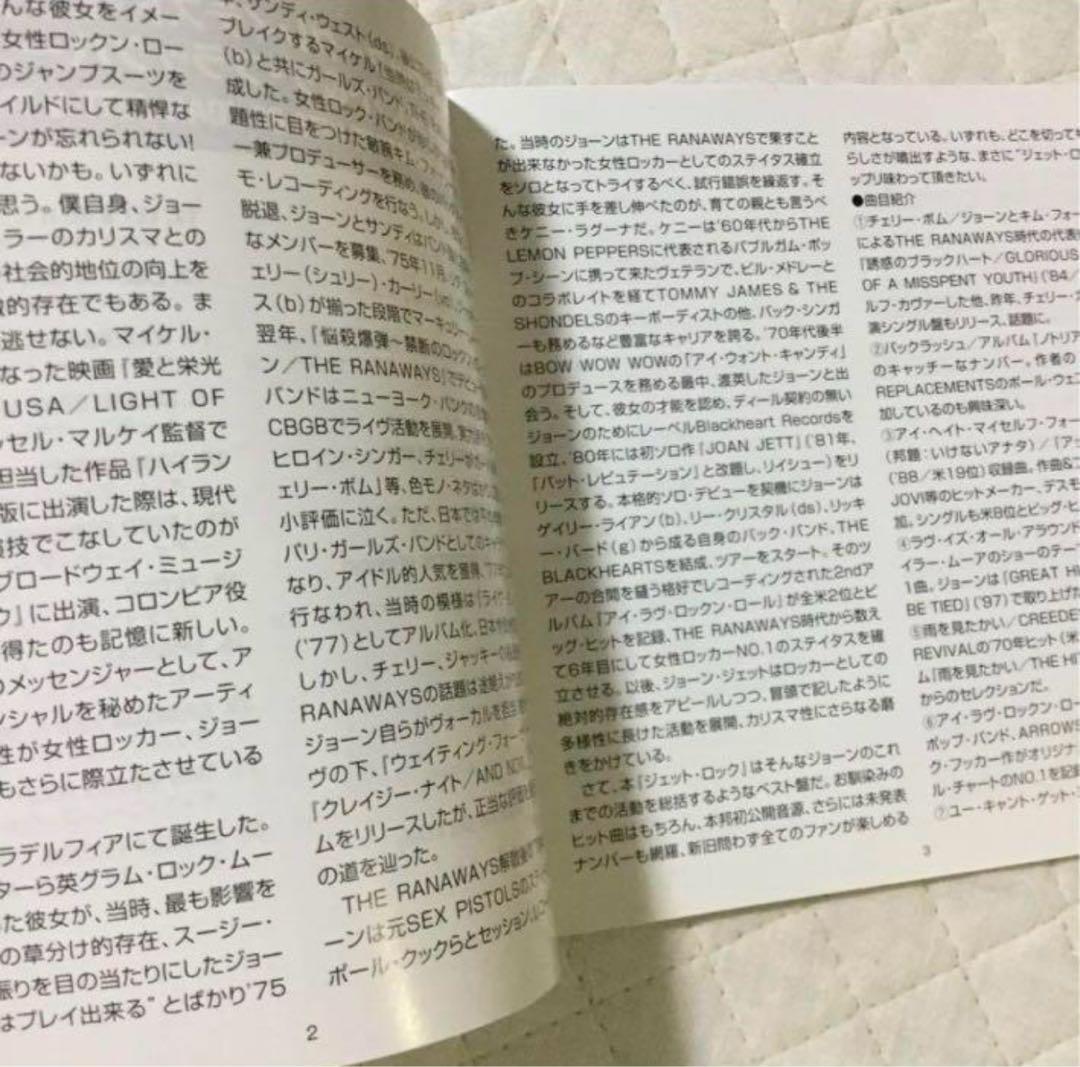 んな彼女をイメー
女性ロックン・ロー
のジャンプスーツを
イルドにして精悍な
ーンが忘れられない!
ないかも。いずれに
思う。僕自身、ジョー
ラーのカリスマとの
社会的地位の向上を
的存在でもある。ま
逃せない。マイケル・
なった映画『愛と栄光
USA／LIGHT OF
ッセル・マルケイ監督で
担当した作品『ハイラン
版に出演した際は、現代
演技でこなしていたのが
ブロードウェイ・ミュージ
ウ』に出演、コロンビア役
得たのも記憶に新しい。
のメッセンジャーとして、ア
ンシャルを秘めたアーティ
性が女性ロッカー、ジョー
もさらに際立たせている
ラデルフィアにて誕生した。
ターら英グラム・ロック・ムー
た彼女が、当時、最も影響を
の草分け的存在、スージー・
振りを目の当たりにしたジョー
はプレイ出来る”とばかり'75
サンディ・ウェスト(ds)、
ブレイクするマイケル
(b)と共にガールズ・バンド、
成した。女性ロック・バンドが
題性に目をつけた敏腕キム・フォー
一兼プロデューサーを務め、
モ・レコーディングを行なう。しか
脱退、ジョーンとサンディはバンド
なメンバーを募集、'75年11月、
ェリー(シュリー)・カーリー
ス(b)が揃った段階でマーキュリー
翌年、『悩殺爆弾〜禁断のロックン・
ン／THE RANAWAYS』でデビュ
バンドはニューヨーク・パンクの
CBGBでライヴ活動を展開、実力
ヒロイン・シンガー、チェリーが
ェリー・ボム」等、色モノ・ネタ
小評価に泣く。ただ、日本では
バリ・ガールズ・バンドとしての
なり、アイドル的人気を獲得、'77
行なわれ、当時の模様は『ライヴ
('77)としてアルバム化、日本
しかし、チェリー、ジャッキーの
RANAWAYSの話題は途絶え
ジョーン自らがヴォーカルを担当
ヴの下、『ウェイティング・フォー
『クレイジー・ナイト／AND NOW
ムをリリースしたが、正当な評価
の道を辿った。
THE RANAWAYS解散後の
ーンは元SEX PISTOLSのス
ポール・クックらとセッション、
2
た。当時のジョーンはTHE RANAWAYSで果すこと
が出来なかった女性ロッカーとしてのステイタス確立
をソロとなってトライするべく、試行錯誤を繰返す。そ
んな彼女に手を差し伸べたのが、育ての親とも言うべ
きケニー・ラグーナだ。ケニーは'60年代からTHE
LEMON PEPPERSに代表されるバブルガム・ポッ
プ・シーンに携って来たヴェテランで、ビル・メドレーと
のコラボレイトを経てTOMMY JAMES & THE
SHONDELSのキーボーディストの他、バック・シンガ
ーも務めるなど豊富なキャリアを誇る。'70年代後半
はBOW WOW WOWの「アイ・ウォント・キャンディ」
のプロデュースを務める最中、渡英したジョーンと出
会う。そして、彼女の才能を認め、ディール契約の無い
ジョーンのためにレーベルBlackheart Recordsを
設立、'80年には初ソロ作『JOAN JETT』('81年、
『バット・レピュテーション』と改題し、リイシュー)をリ
リースする。本格的ソロ・デビューを契機にジョーンは
ゲイリー・ライアン(b)、リー・クリスタル(ds)、リッキ
ー・バード(g)から成る自身のバック・バンド、THE
BLACKHEARTSを結成、ツアーをスタート。そのツ
アーの合間を縫う格好でレコーディングされた2ndア
ルバム『アイ・ラヴ・ロックン・ロール』が全米2位とビ
ッグ・ヒットを記録、THE RANAWAYS時代から数え
て6年目にして女性ロッカーNO.1のステイタスを確
立させる。以後、ジョーン・ジェットはロッカーとしての
絶対的存在感をアピールしつつ、冒頭で記したように
多様性に長けた活動を展開、カリスマ性にさらなる磨
きをかけている。
さて、本『ジェット・ロック』はそんなジョーンのこれ
までの活動を総括するようなベスト盤だ。お馴染みの
ヒット曲はもちろん、本邦初公開音源、さらには未発表
ナンバーも網羅、新旧問わず全てのファンが楽しめる
内容となっている。いずれも、どこを切っても
らしさが噴出すような、まさに“ジェット・ロ
ップリ味わって頂きたい。
●曲目紹介
①チェリー・ボム／ジョーンとキム・フォー
によるTHE RANAWAYS時代の代表
『誘惑のブラックハート／GLORIOUS
OF A MISSPENT YOUTH』('84／
ルフ・カヴァーした他、昨年、チェリー・カ
演シングル盤もリリース、話題に。
②バックラッシュ／アルバム『ノトリア
のキャッチーなナンバー。作者の
REPLACEMENTSのポール・ウェ
加しているのも興味深い。
③アイ・ヘイト・マイセルフ・フォー
(邦題:いけないアナタ)／『アッ
('88／米19位)収録曲。作曲&
JOVI等のヒットメーカー、デスモ
加。シングルも米8位とビッグ・ヒ
④ラヴ・イズ・オール・アラウンド
イラー・ムーアのショーのテー
1曲。ジョーンは『GREAT HI
BE TIED』('97)で取り上げた
⑤雨を見たかい／CREEDE
REVIVALの70年ヒット(米
ム『雨を見たかい／THE HIT
からのセレクションだ。
⑥アイ・ラヴ・ロックン・ロー
ポップ・バンド、ARROWS
ク・フッカー作がオリジナ
ル・チャートのNO.1を記録
⑦ユー・キャント・ゲット・
3